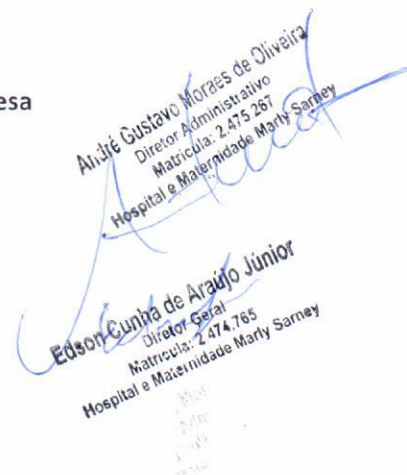 esa
André Gustavo Moraes de Oliveira
Diretor Administrativo
Matrícula: 2.475.267
Hospital e Maternidade Marly Sarney
Edson Cunha de Araújo Júnior
Diretor Geral
Matrícula: 2.474.765
Hospital e Maternidade Marly Sarney